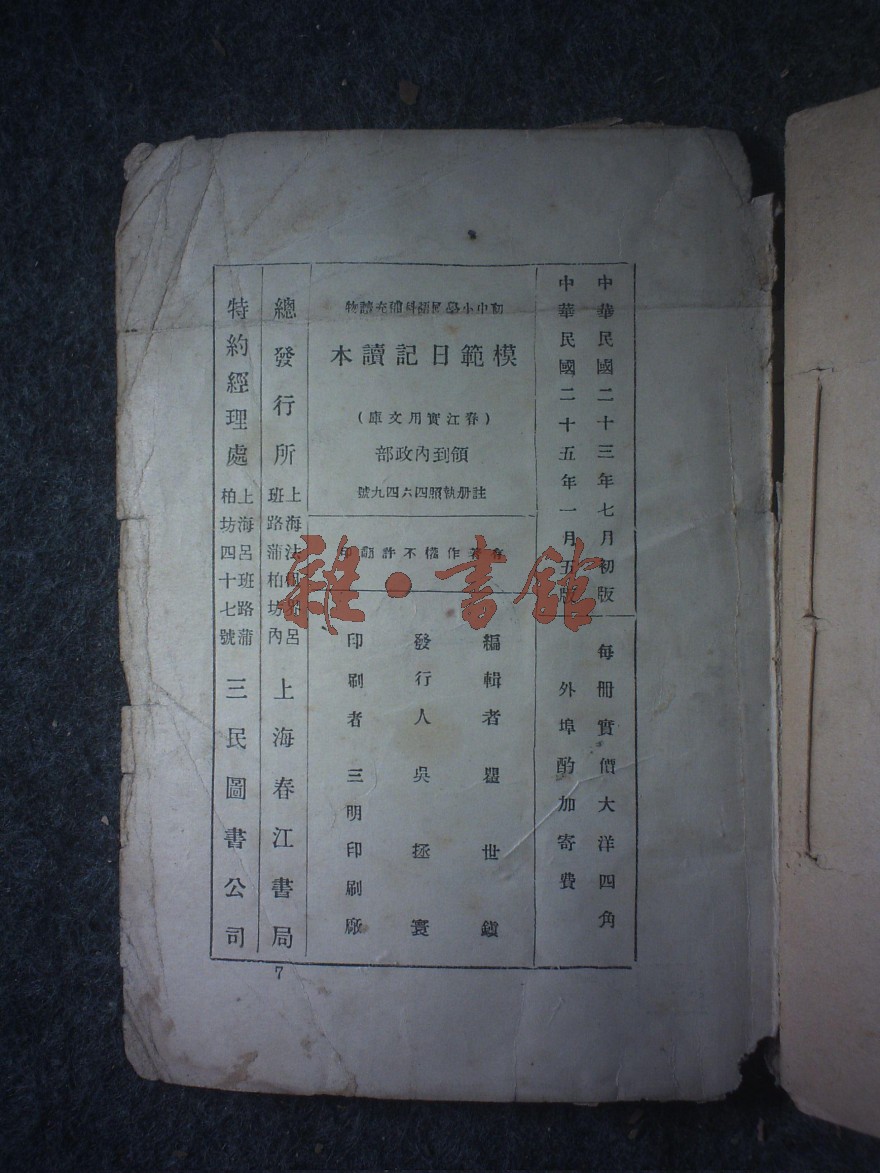 中華民國二十三年七月初版
中華民國二十五年一月五版
每冊實價大洋四角
外埠酌加寄費
初中小學國語科補充讀物
模範日記讀本
（春江實用文庫）
領到內政部
註册執照四六四九號
有著作權不許翻印
編輯者 瞿世鎮
發行人 吳拯寰
印刷者 三明印刷廠
總發行所
上海法租界呂
班路蒲柏坊內
上海春江書局
特約經理處
上海呂班路蒲
柏坊四十七號
三民圖書公司
7
雜·書館